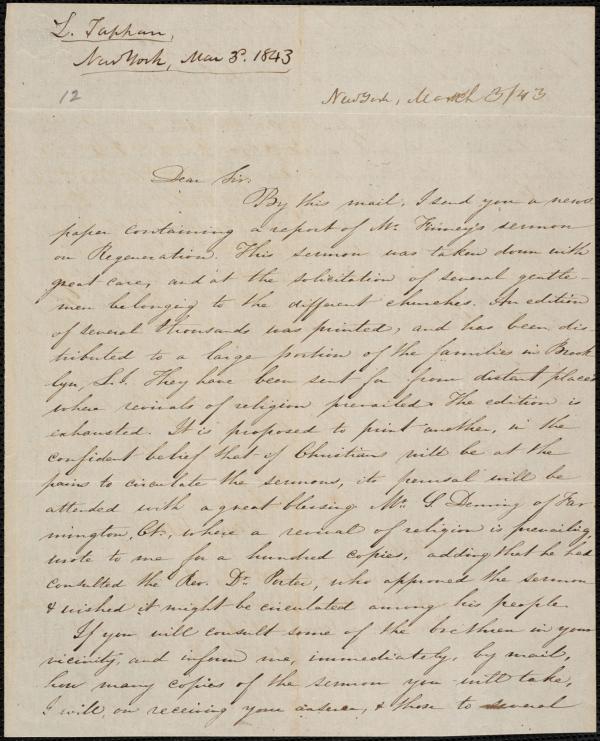 L. Tappan,
New York, Mar 3d. 1843
12
New York, March 3/43
Dear Sir.
By this mail, I send you a news
paper containing a report of Mr. Finney's sermon
on Regeneration. This sermon was taken down with
great care, and at the solicitation of several gentle-
men belonging to the different churches. An edition
of several thousands was printed, and has been dis-
tributed to a large portion of the families in Brook
lyn, L.I. They have been sent for from distant places
where revivals of religion prevailed. The edition is
exhausted. It is proposed to print another, in the
confident belief that if Christians will be at the
pains to circulate the sermons, its perusal will be
attended with a great blessing. Mr. S. Deming of Far
mington, Ct., where a revival of religion is prevailing,
wrote to me for a hundred copies, adding that he had
consulted the Rev. Dr. Porter, who approved the sermon
& wished it might be circulated among his people.
If you will consult some of the brethren in your
vicinity, and inform me, immediately, by mail,
how many copies of the sermon you will take,
I will, on receiving your answer, & those to several